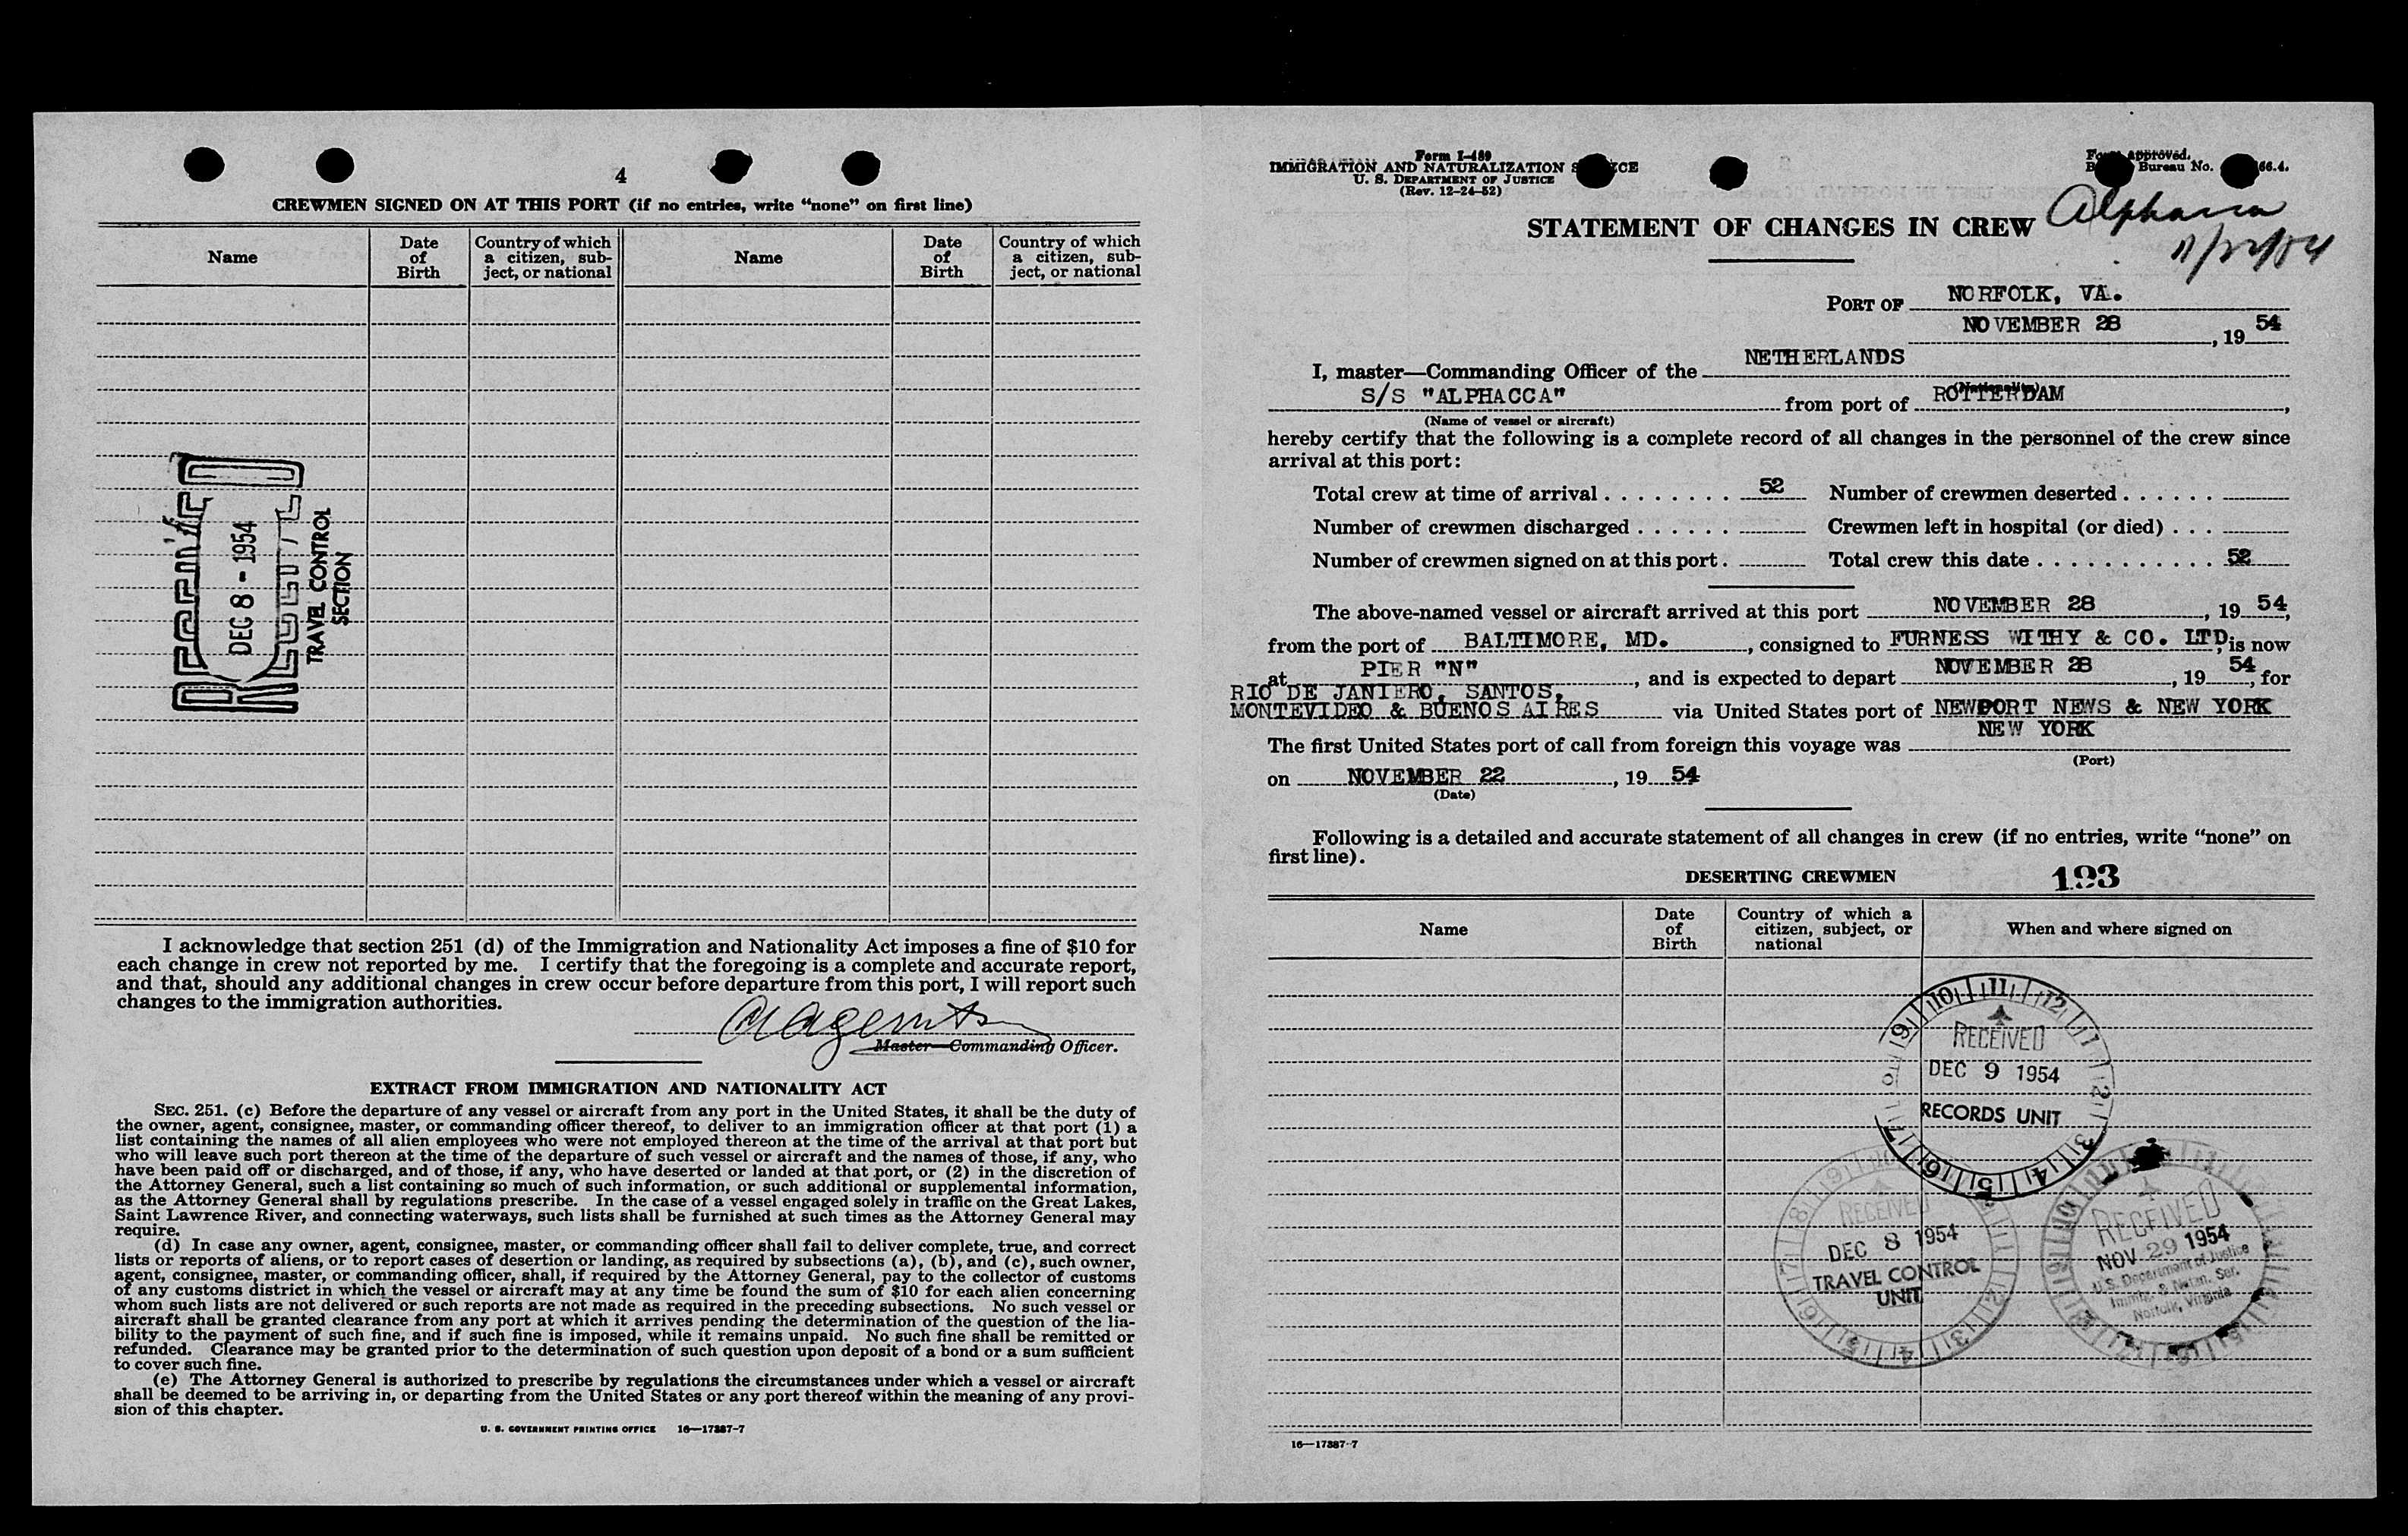 4
CREWMEN SIGNED ON AT THIS PORT (if no entries, write "none" on first line)
Name
Date of Birth
Country of which a citizen, subject, or national
Name
Date of Birth
Country of which a citizen, subject, or national
DEC 8 - 1954
TRAVEL CONTROL
SECTION
I acknowledge that section 251 (d) of the Immigration and Nationality Act imposes a fine of $10 for
each change in crew not reported by me. I certify that the foregoing is a complete and accurate report,
and that, should any additional changes in crew occur before departure from this port, I will report such
changes to the immigration authorities.
Master—Commanding Officer.
EXTRACT FROM IMMIGRATION AND NATIONALITY ACT
SEC. 251. (c) Before the departure of any vessel or aircraft from any port in the United States, it shall be the duty of
the owner, agent, consignee, master, or commanding officer thereof, to deliver to an immigration officer at that port (1) a
list containing the names of all alien employees who were not employed thereon at the time of the arrival at that port but
who will leave such port thereon at the time of the departure of such vessel or aircraft and the names of those, if any, who
have been paid off or discharged, and of those, if any, who have deserted or landed at that port, or (2) in the discretion of
the Attorney General, such a list containing so much of such information, or such additional or supplemental information,
as the Attorney General shall by regulations prescribe. In the case of a vessel engaged solely in traffic on the Great Lakes,
Saint Lawrence River, and connecting waterways, such lists shall be furnished at such times as the Attorney General may
require.
(d) In case any owner, agent, consignee, master, or commanding officer shall fail to deliver complete, true, and correct
lists or reports of aliens, or to report cases of desertion or landing, as required by subsections (a), (b), and (c), such owner,
agent, consignee, master, or commanding officer, shall, if required by the Attorney General, pay to the collector of customs
of any customs district in which the vessel or aircraft may at any time be found the sum of $10 for each alien concerning
whom such lists are not delivered or such reports are not made as required in the preceding subsections. No such vessel or
aircraft shall be granted clearance from any port at which it arrives pending the determination of the question of the lia-
bility to the payment of such fine, and if such fine is imposed, while it remains unpaid. No such fine shall be remitted or
refunded. Clearance may be granted prior to the determination of such question upon deposit of a bond or a sum sufficient
to cover such fine.
(e) The Attorney General is authorized to prescribe by regulations the circumstances under which a vessel or aircraft
shall be deemed to be arriving in, or departing from the United States or any port thereof within the meaning of any provi-
sion of this chapter.
U. S. GOVERNMENT PRINTING OFFICE 16—17387-7
Form I-489
IMMIGRATION AND NATURALIZATION
U. S. DEPARTMENT OF JUSTICE
(Rev. 12-24-52)
approved.
Bureau No. 66.4.
STATEMENT OF CHANGES IN CREW
PORT OF NORFOLK, VA.
NOVEMBER 28, 19 54
I, master—Commanding Officer of the NETHERLANDS
(Nationality)
S/S "ALPHACCA" from port of ROTTERDAM,
(Name of vessel or aircraft)
hereby certify that the following is a complete record of all changes in the personnel of the crew since
arrival at this port:
Total crew at time of arrival . . . . . . . . 52 Number of crewmen deserted . . . . . .
Number of crewmen discharged . . . . . . Crewmen left in hospital (or died) . . .
Number of crewmen signed on at this port . Total crew this date . . . . . . . . . . . 52
The above-named vessel or aircraft arrived at this port NOVEMBER 28, 19 54,
from the port of BALTIMORE, MD., consigned to FURNESS WITHY & CO. LTD, is now
at PIER "N", and is expected to depart NOVEMBER 28, 19 54, for
RIO DE JANIERO, SANTOS,
MONTEVIDEO & BUENOS AIRES via United States port of NEWPORT NEWS & NEW YORK
The first United States port of call from foreign this voyage was NEW YORK
(Port)
on NOVEMBER 22, 19 54
(Date)
Following is a detailed and accurate statement of all changes in crew (if no entries, write "none" on
first line).
DESERTING CREWMEN 193
Name
Date of Birth
Country of which a citizen, subject, or national
When and where signed on
RECEIVED
DEC 9 1954
RECORDS UNIT
RECEIVED
DEC 8 1954
TRAVEL CONTROL
UNIT
RECEIVED
NOV 29 1954
U.S. Department of Justice
Immig. & Natzn. Ser.
Norfolk, Virginia
16—17387-7